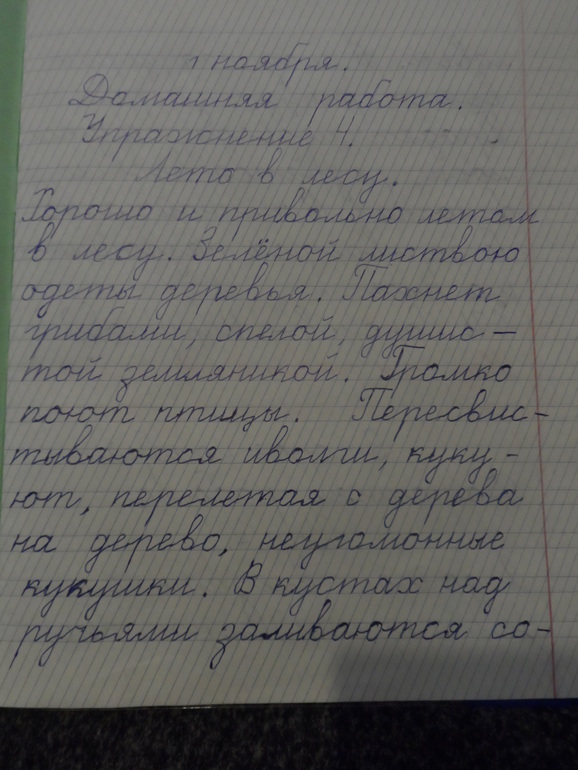 1 ноября.
Домашняя работа.
Упражнение 4.
Лето в лесу.
Хорошо и привольно летом
в лесу. Зелёной листвою
одеты деревья. Пахнет
грибами, спелой, душис-
той земляникой. Громко
поют птицы. Пересвис-
тываются иволги, куку-
ют, перелетая с дерева
на дерево, неугомонные
кукушки. В кустах над
ручьями заливаются со-